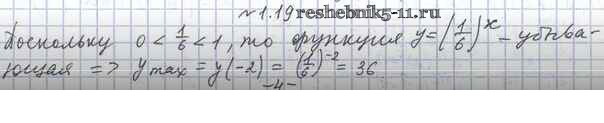 №1.19 reshebnik5-11.ru
Поскольку 0 < 1/6 < 1, то функция y = (1/6)^x – убыва-
ющая => y max = y(-2) = (1/6)^-2 = 36.
-4-